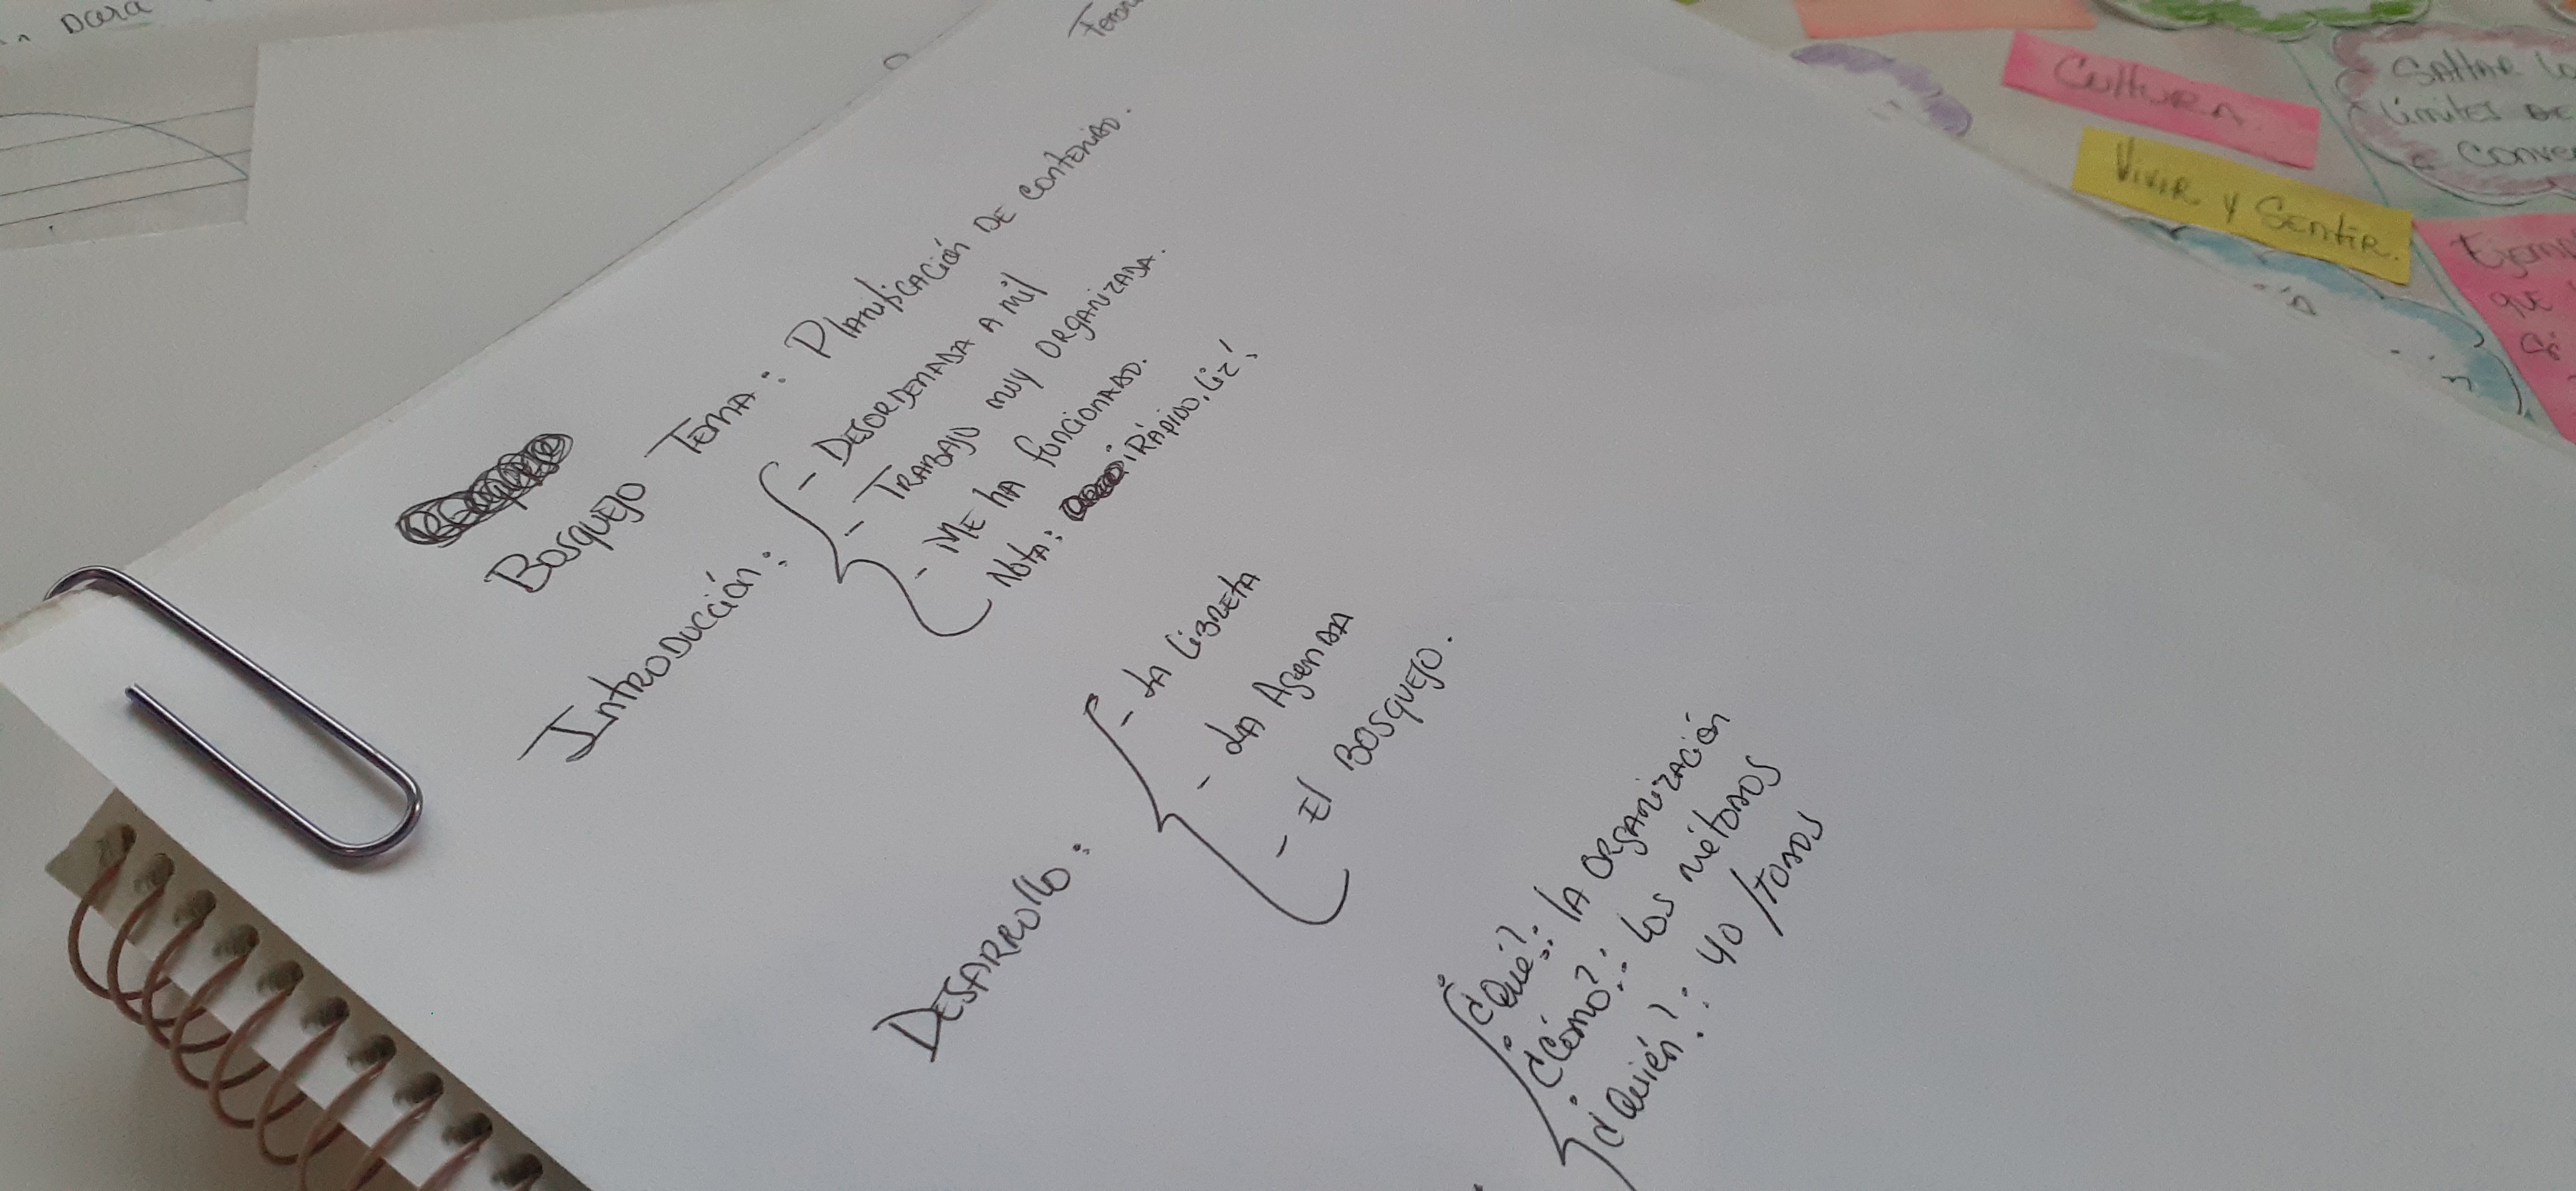 Dara
Bosquejo Tema: Planificación de contenido.
Introducción:
- Desordenada a mil
- Trabajo muy organizada.
- Me ha funcionado.
Nota: ¡Rápido, Liz!
Desarrollo:
- La Libreta
- La Agenda
- El Bosquejo.
¿Qué?: la organización
¿Cómo?: los métodos
¿Quién?: yo/todos
Cultura
Vivir y Sentir.
Saltar
límites de